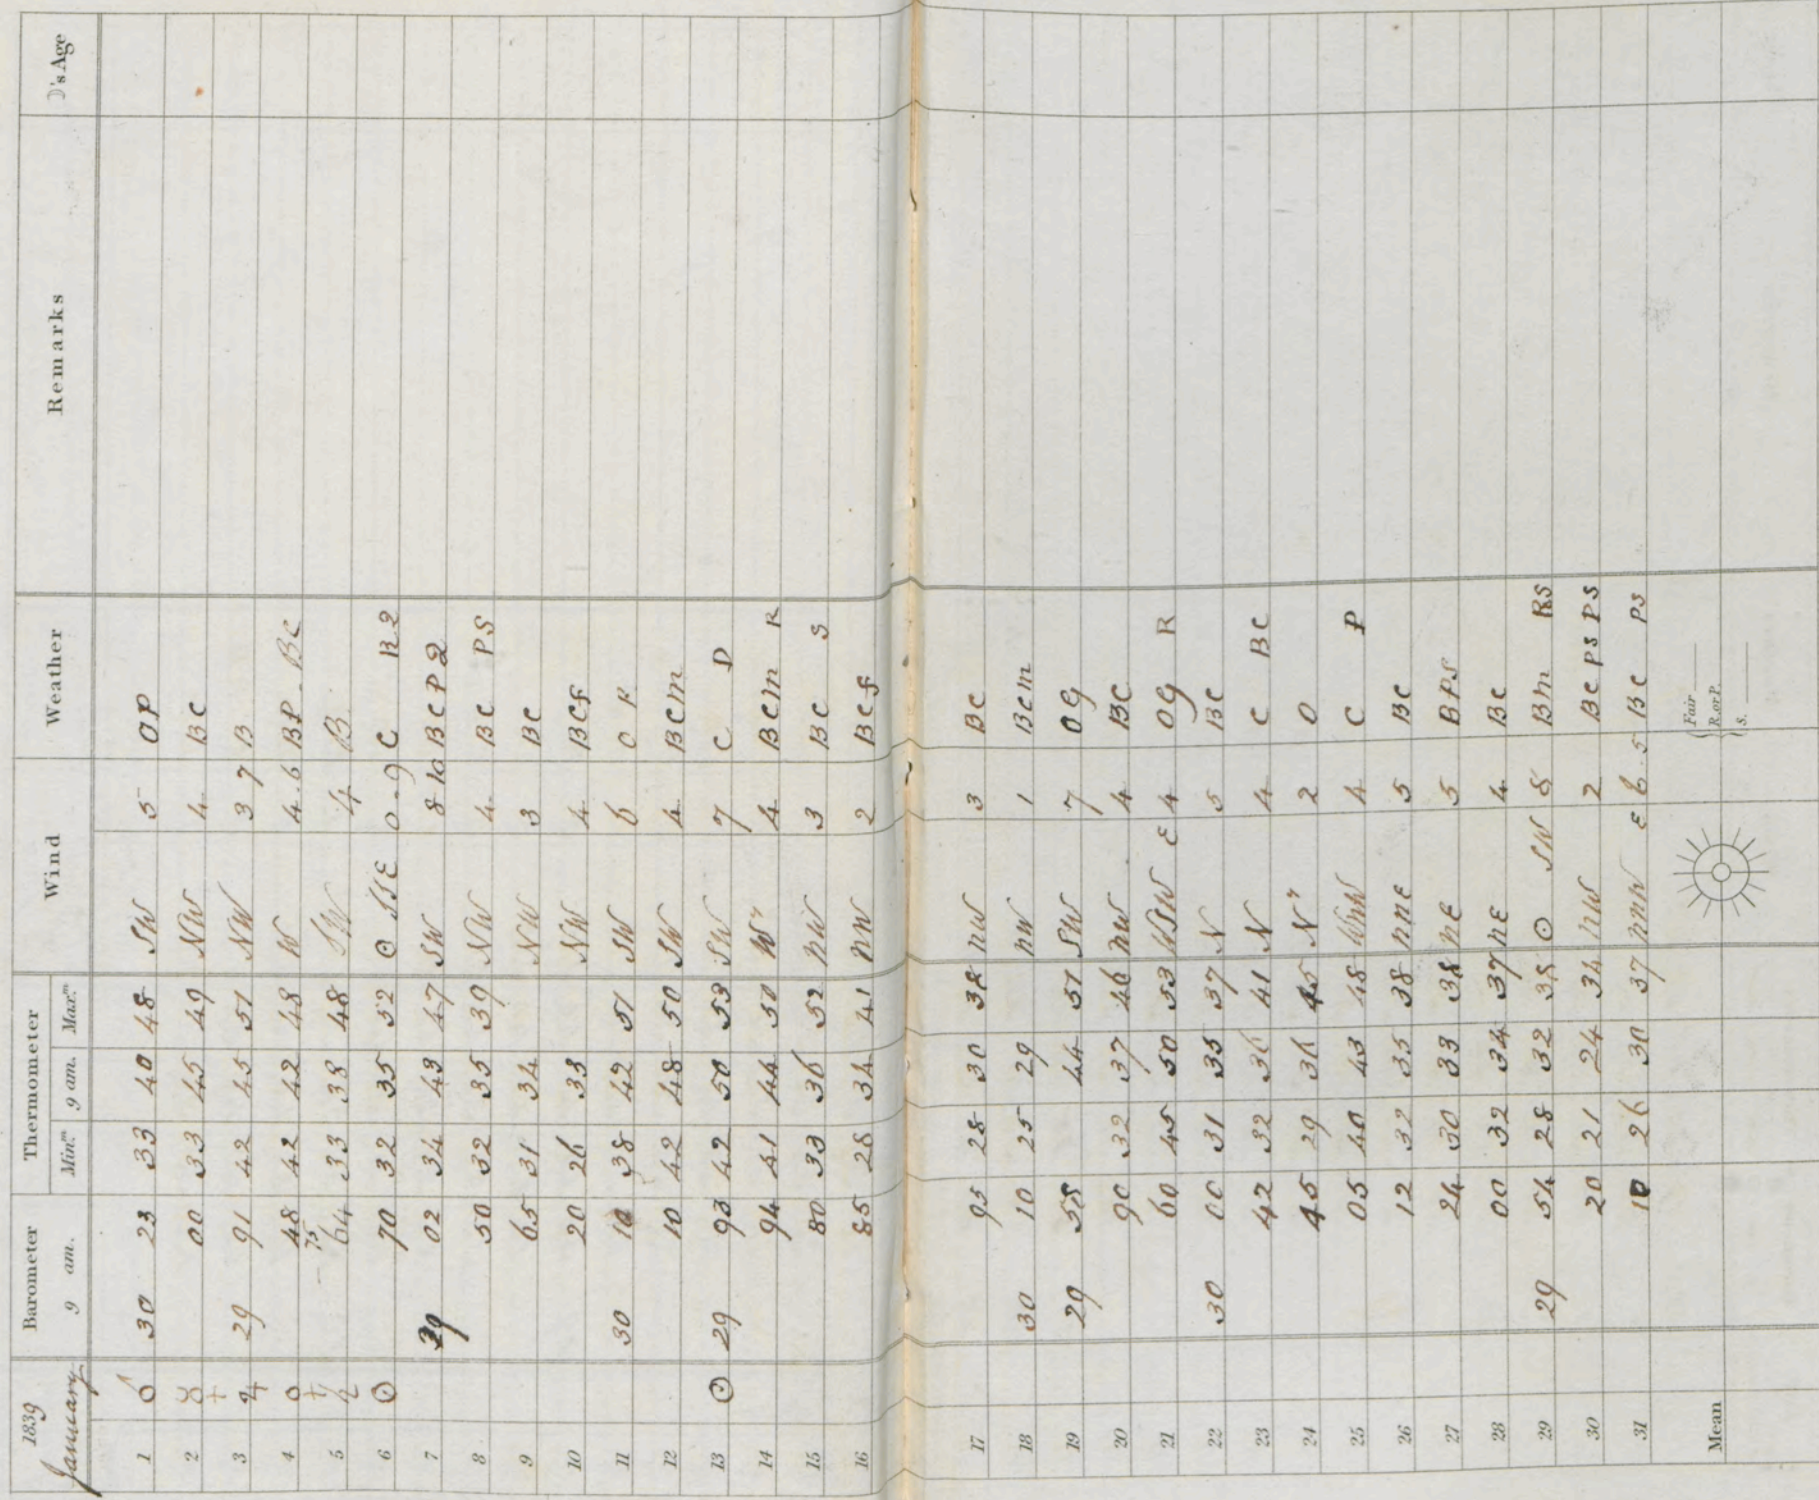 1839 January Barometer 9 am. Thermometer Min.m 9 am. Max.m Wind Weather Remarks ☽'s Age
1 ♂ 30 23 33 40 48 SW 5 OP
2 ☿ 00 33 45 49 NW 4 BC
3 ♃ 29 91 42 45 51 NW 3 7 B
4 ♀ 48 75 42 42 48 W 4.6 BP. BC
5 ♄ 64 33 38 48 SW 4 B
6 ☉ 70 32 35 52 ⊙ SSE 0-9 C R2
7 29 02 34 43 47 SW 8 10 BCP2
8 50 32 35 39 NW 4 BC PS
9 65 31 34 NW 3 BC
10 20 26 33 NW 4 BCF
11 30 10 38 42 51 SW 6 O
12 10 42 48 50 SW 4 BCM
13 ☉ 29 93 42 50 53 SW 7 C D
14 94 41 44 50 W" 4 BCM R
15 80 33 36 52 NW 3 BC S
16 85 28 34 41 NW 2 BCF
17 95 28 30 38 NW 3 BC
18 30 10 25 29 NW 1 BCM
19 29 58 44 51 SW 7 OG
20 90 32 37 46 NW 4 BC
21 60 45 50 53 WSW E 4 OG R
22 30 00 31 35 37 N 5 BC
23 42 32 36 41 N 4 C BC
24 45 29 36 45 N" 2 O
25 05 40 43 48 WNW 4 C P
26 12 32 35 38 NNE 5 BC
27 24 30 33 38 NE 5 BPS
28 00 32 34 37 NE 4 BC
29 29 54 28 32 38 ⊙ SW 8 BM RS
30 20 21 24 34 NW 2 BC PS PS
31 10 26 30 37 NNW E 6.5 BC PS
Mean { Fair
R. or P.
S.